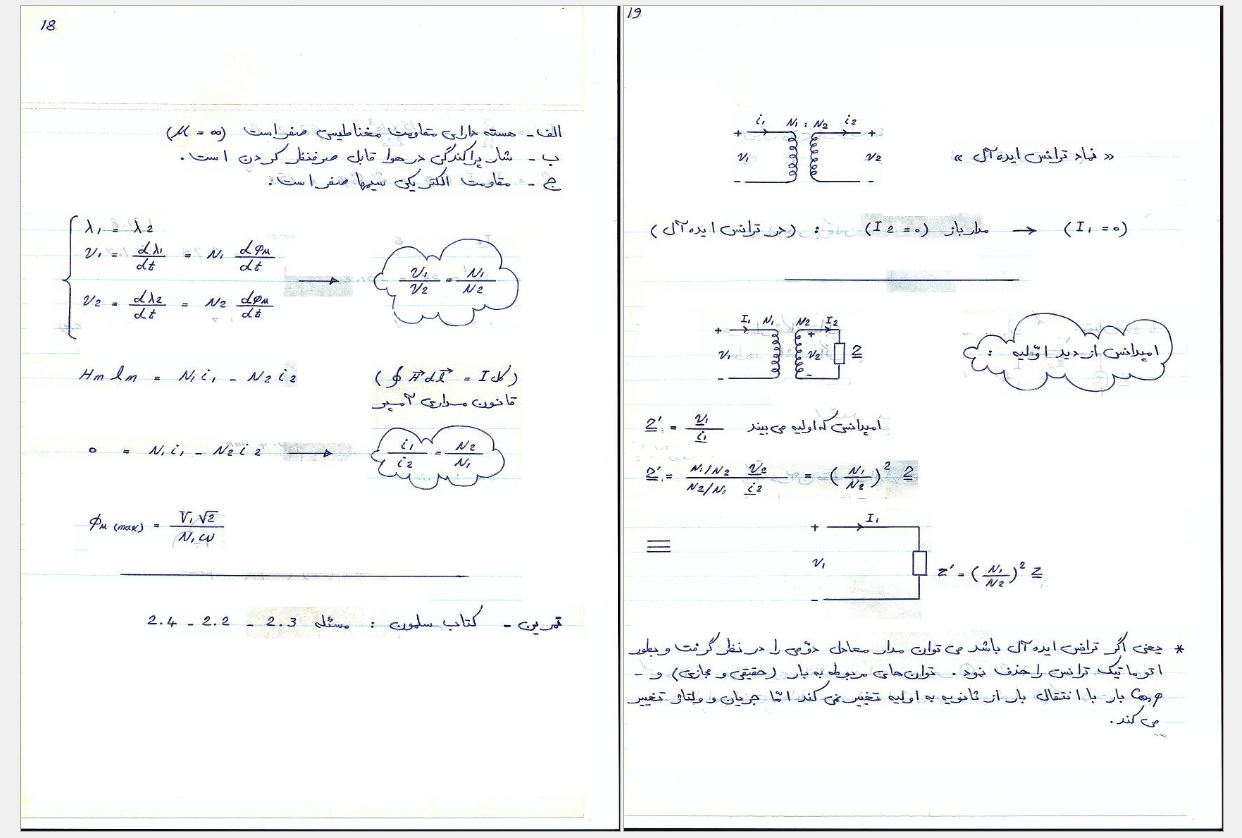 18
الف - هسته دارای مقاومت مغناطیسی صفر است (μ = ∞)
ب - شار پراکندگی در هوا قابل صرفنظر کردن است.
ج - مقاومت الکتریکی سیمها صفر است.
λ1 = λ2
v1 = dλ1/dt = N1 dφM/dt → v1/v2 = N1/N2
v2 = dλ2/dt = N2 dφM/dt
Hm lm = N1 i1 - N2 i2 (∮ H dl = I کل)
قانون مداری آمپر
0 = N1 i1 - N2 i2 → i1/i2 = N2/N1
φM (max) = V1√2 / N1 ω
تمرین - کتاب سلمون : مسئله 2.3 - 2.2 - 2.4
19
i1 N1 : N2 i2
+ + 
v1 v2
- -
« نماد ترانس ایده آل »
(در ترانس ایده آل) : مدار باز (I2 = 0) → (I1 = 0)
امپدانس از دید اوّلیه :
I1 N1 N2 I2
+ +
v1 v2 Z
- -
Z'1 = v1/i1 امپدانسی که اولیه می بیند
Z'1 = N1/N2 v2 / N2/N1 i2 = (N1/N2)² Z
≡
+ I1
v1
-
Z' = (N1/N2)² Z
* یعنی اگر ترانس ایده آل باشد می توان مدار معادل دوّمی را در نظر گرفت و بطور
اتوماتیک ترانس را حذف نمود. توان های مربوطه به بار (حقیقی و مجازی) و -
Cosφ بار با انتقال بار از ثانویه به اولیه تغییر نمی کند امّا جریان و ولتاژ تغییر
می کند.